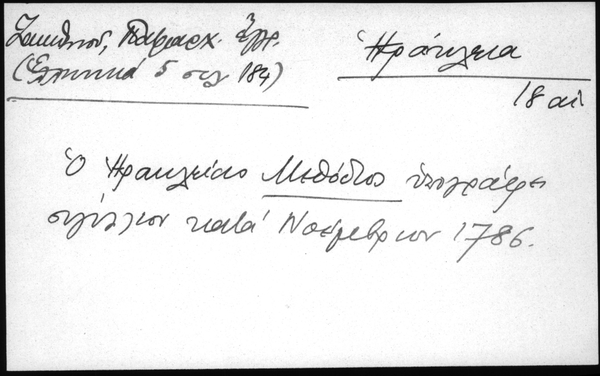 Ζακυθινοῦ, Πατριαρχ. Ἔγγρ.
(Ἑλληνικά 5 σελ 184)
Ἡράκλεια
18 αἰ
Ὁ Ἡρακλείας Μεθόδιος ὑπογράφει
σιγίλλιον κατά Νοέμβριον 1786.